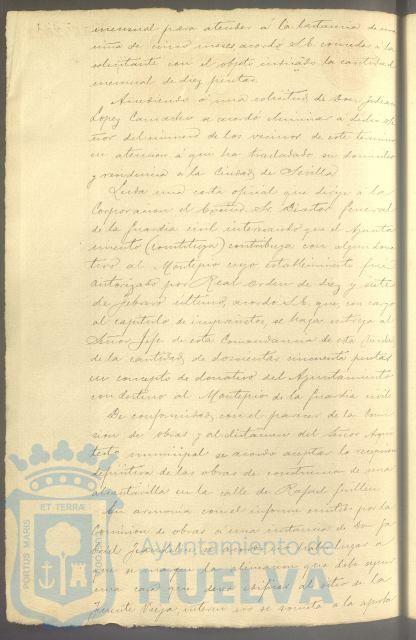 mensual para atender á la lactancia de una
niña de cinco meses, acordó S.E. conceder á la
solicitante con el objeto indicado la cantidad
mensual de diez pesetas
Accediendo á una solicitud de Don Julian
Lopez Camacho se acordó eliminar á dicho Se
ñor del número de los vecinos de este término
en atencion á que ha trasladado su domicilio
y residencia á la Ciudad de Sevilla
Leida una carta oficial que dirije á la
Corporacion el Excmo. Sr. Director General
de la Guardia civil interesando que el Ayunta
miento (contituya) contribuya con algun dona
tivo al Montepio cuyo establecimiento fué
autorizado por Real orden de diez y siete
de Febrero último, acordó S.E. que, con cargo
al capitulo de imprevistos, se haga entrega al
Señor Jefe de esta Comandancia de esta Ciudad
de la cantidad de doscientas cincuenta pesetas
en concepto de donativo del Ayuntamiento
con destino al Montepio de la Guardia civil
De conformidad con el parecer de la Comi
sion de obras y al dictamen del Señor Arqui
tecto municipal se acordó aceptar la recepcion
definitiva de las obras de construccion de una
alcantarilla en la calle de Rafael Guillen
En armonia con el informe emitido por la
Comision de obras á una instancia de Don
se acordó
que se marque la alineacion que debe
una casa que edificar al sitio de la
Fuente Vieja, interin no se someta á la aproba
PORTUS MARIS ET TERRAE CUSTODIA
Ayuntamiento de
HUELVA